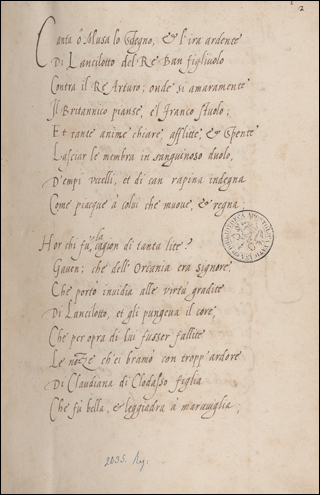 2
Canta ó Musa lo sdegno, & l'ira ardente
Di Lancilotto del Re Ban figliuolo
Contra il Re Arturo; onde si amaramente
Il Britannico pianse, e'l franco stuolo;
Et tante anime chiare, afflitte, & spente
Lasciar le membra in sanguinoso duolo,
D'empi uccelli, et di can rapina indegna
Come piacque à colui che muove, & regna.
Hor chi fù la cagion di tanta lite?
Gaven; che dell'Orcania era signore,
Che portò invidia alle virtù gradite
Di Lancilotto, et gli pungeva il core,
Che per opra di lui fusser fallite
Le nozze ch'ei bramò con tropp'ardore
Di Claudiana di Clodasso figlia
Che fù bella, & leggiadra à maraviglia;
2035.